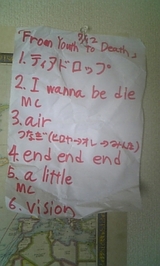 2/12
「From Youth To Death」
1. ティアドロップ
2. I wanna be die
MC
3. air
つなぎ(ヒロヤ→オレ→みんな)
4. end end end
5. a little
MC
6. vision